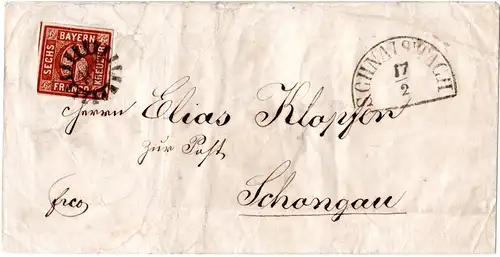 BAYERN
SECHS
KREUZER
FRANCO
SCHNAITTACH
17
2
Herrn Elias Klopfer
zur Post
Schongau
frco